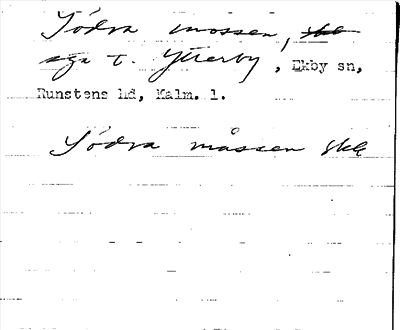 Södra mossen,
äga t. Ytterby, Ekby sn,
Runstens hd, Kalm. l.
Södra måssen skk